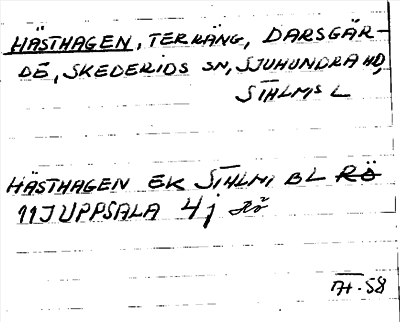 HÄSTHAGEN, TERRÄNG, DARSGÄR-
DE, SKEDERIDS SN, SJUHUNDRA HD,
STHLMS L
HÄSTHAGEN EK STHLM, BL RÖ
11J UPPSALA 4j
58